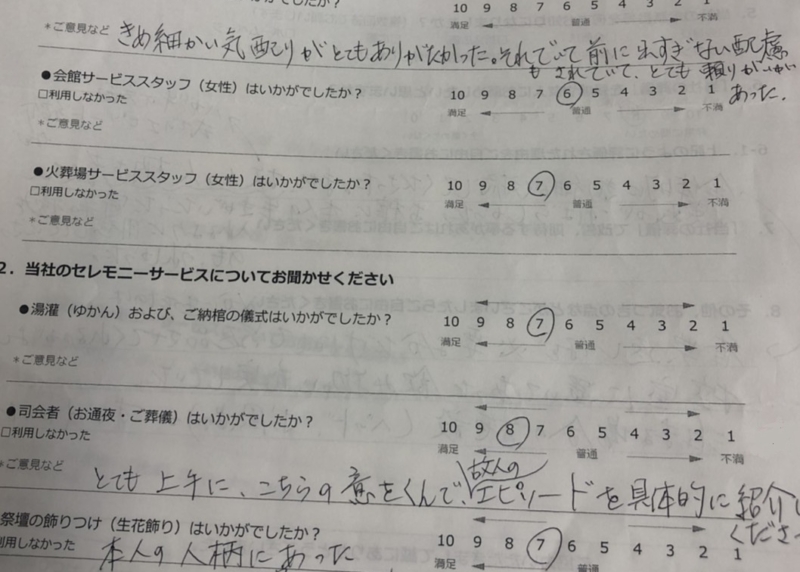 がでしたか？ 10 9 8 7 6 5 4 3 2 1
満足 普通 不満
*ご意見など きめ細かい気配りがとてもありがたかった。それでいて前に出すぎない配慮
もされていて、とても頼りがいが
あった.
●会館サービススタッフ（女性）はいかがでしたか？ 10 9 8 7 6 5 4 3 2 1
□利用しなかった 満足 普通 不満
*ご意見など
●火葬場サービススタッフ（女性）はいかがでしたか？ 10 9 8 7 6 5 4 3 2 1
□利用しなかった 満足 普通 不満
*ご意見など
2．当社のセレモニーサービスについてお聞かせください
●湯灌（ゆかん）および、ご納棺の儀式はいかがでしたか？ 10 9 8 7 6 5 4 3 2 1
満足 普通 不満
*ご意見など
●司会者（お通夜・ご葬儀）はいかがでしたか？ 10 9 8 7 6 5 4 3 2 1
□利用しなかった 満足 普通 不満
*ご意見など とても上手に、こちらの意をくんで、故人のエピソードを具体的に紹介し
くださっ
祭壇の飾りつけ（生花飾り）はいかがでしたか？ 10 9 8 7 6 5 4 3 2 1
利用しなかった 本人の人柄にあった 満足 普通